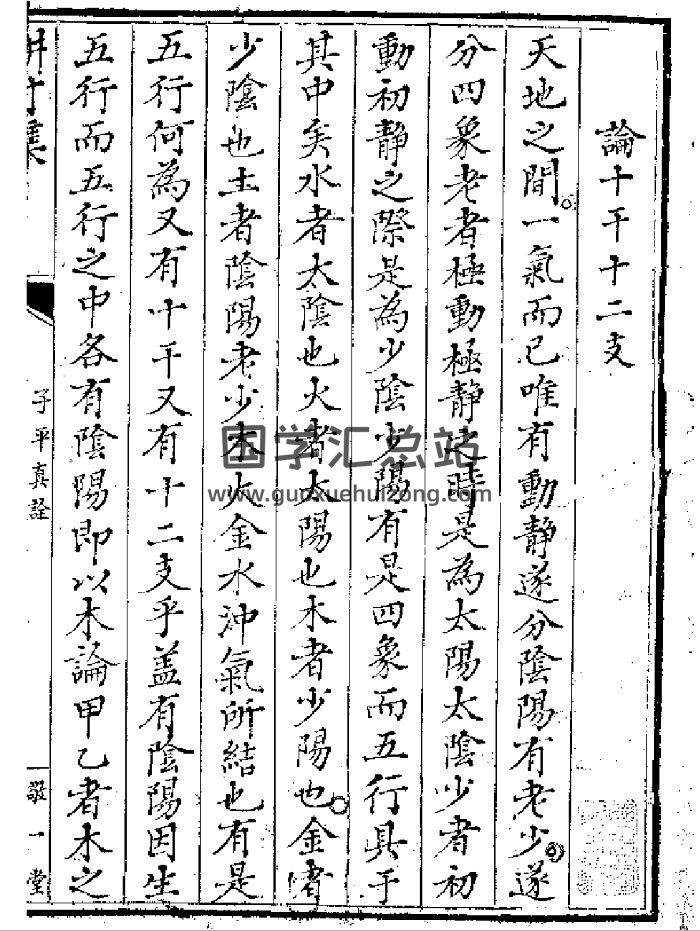 論十干十二支
天地之間一氣而已唯有動靜遂分陰陽有老少遂
分四象老者極動極靜之時是為太陽太陰少者初
動初靜之際是為少陰少陽有是四象而五行具于
其中矣水者太陰也火者太陽也木者少陽也金者
少陰也土者陰陽老少木火金水沖氣所結也有是
五行何為又有十干又有十二支乎盖有陰陽因生
五行而五行之中各有陰陽即以木論甲乙者木之
子平真詮
敬一堂
国学汇总站
www.guoxuehuizong.com